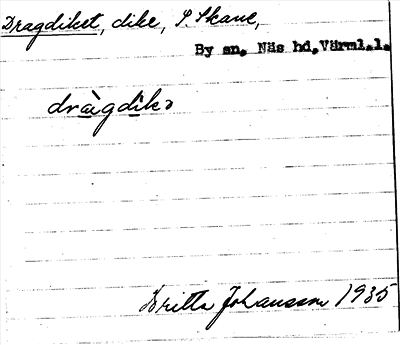 Dragdiket, dike, S. Skane,
By sn. Näs hd, Värml.l.
dràgdikə
Britta Johansson 1935